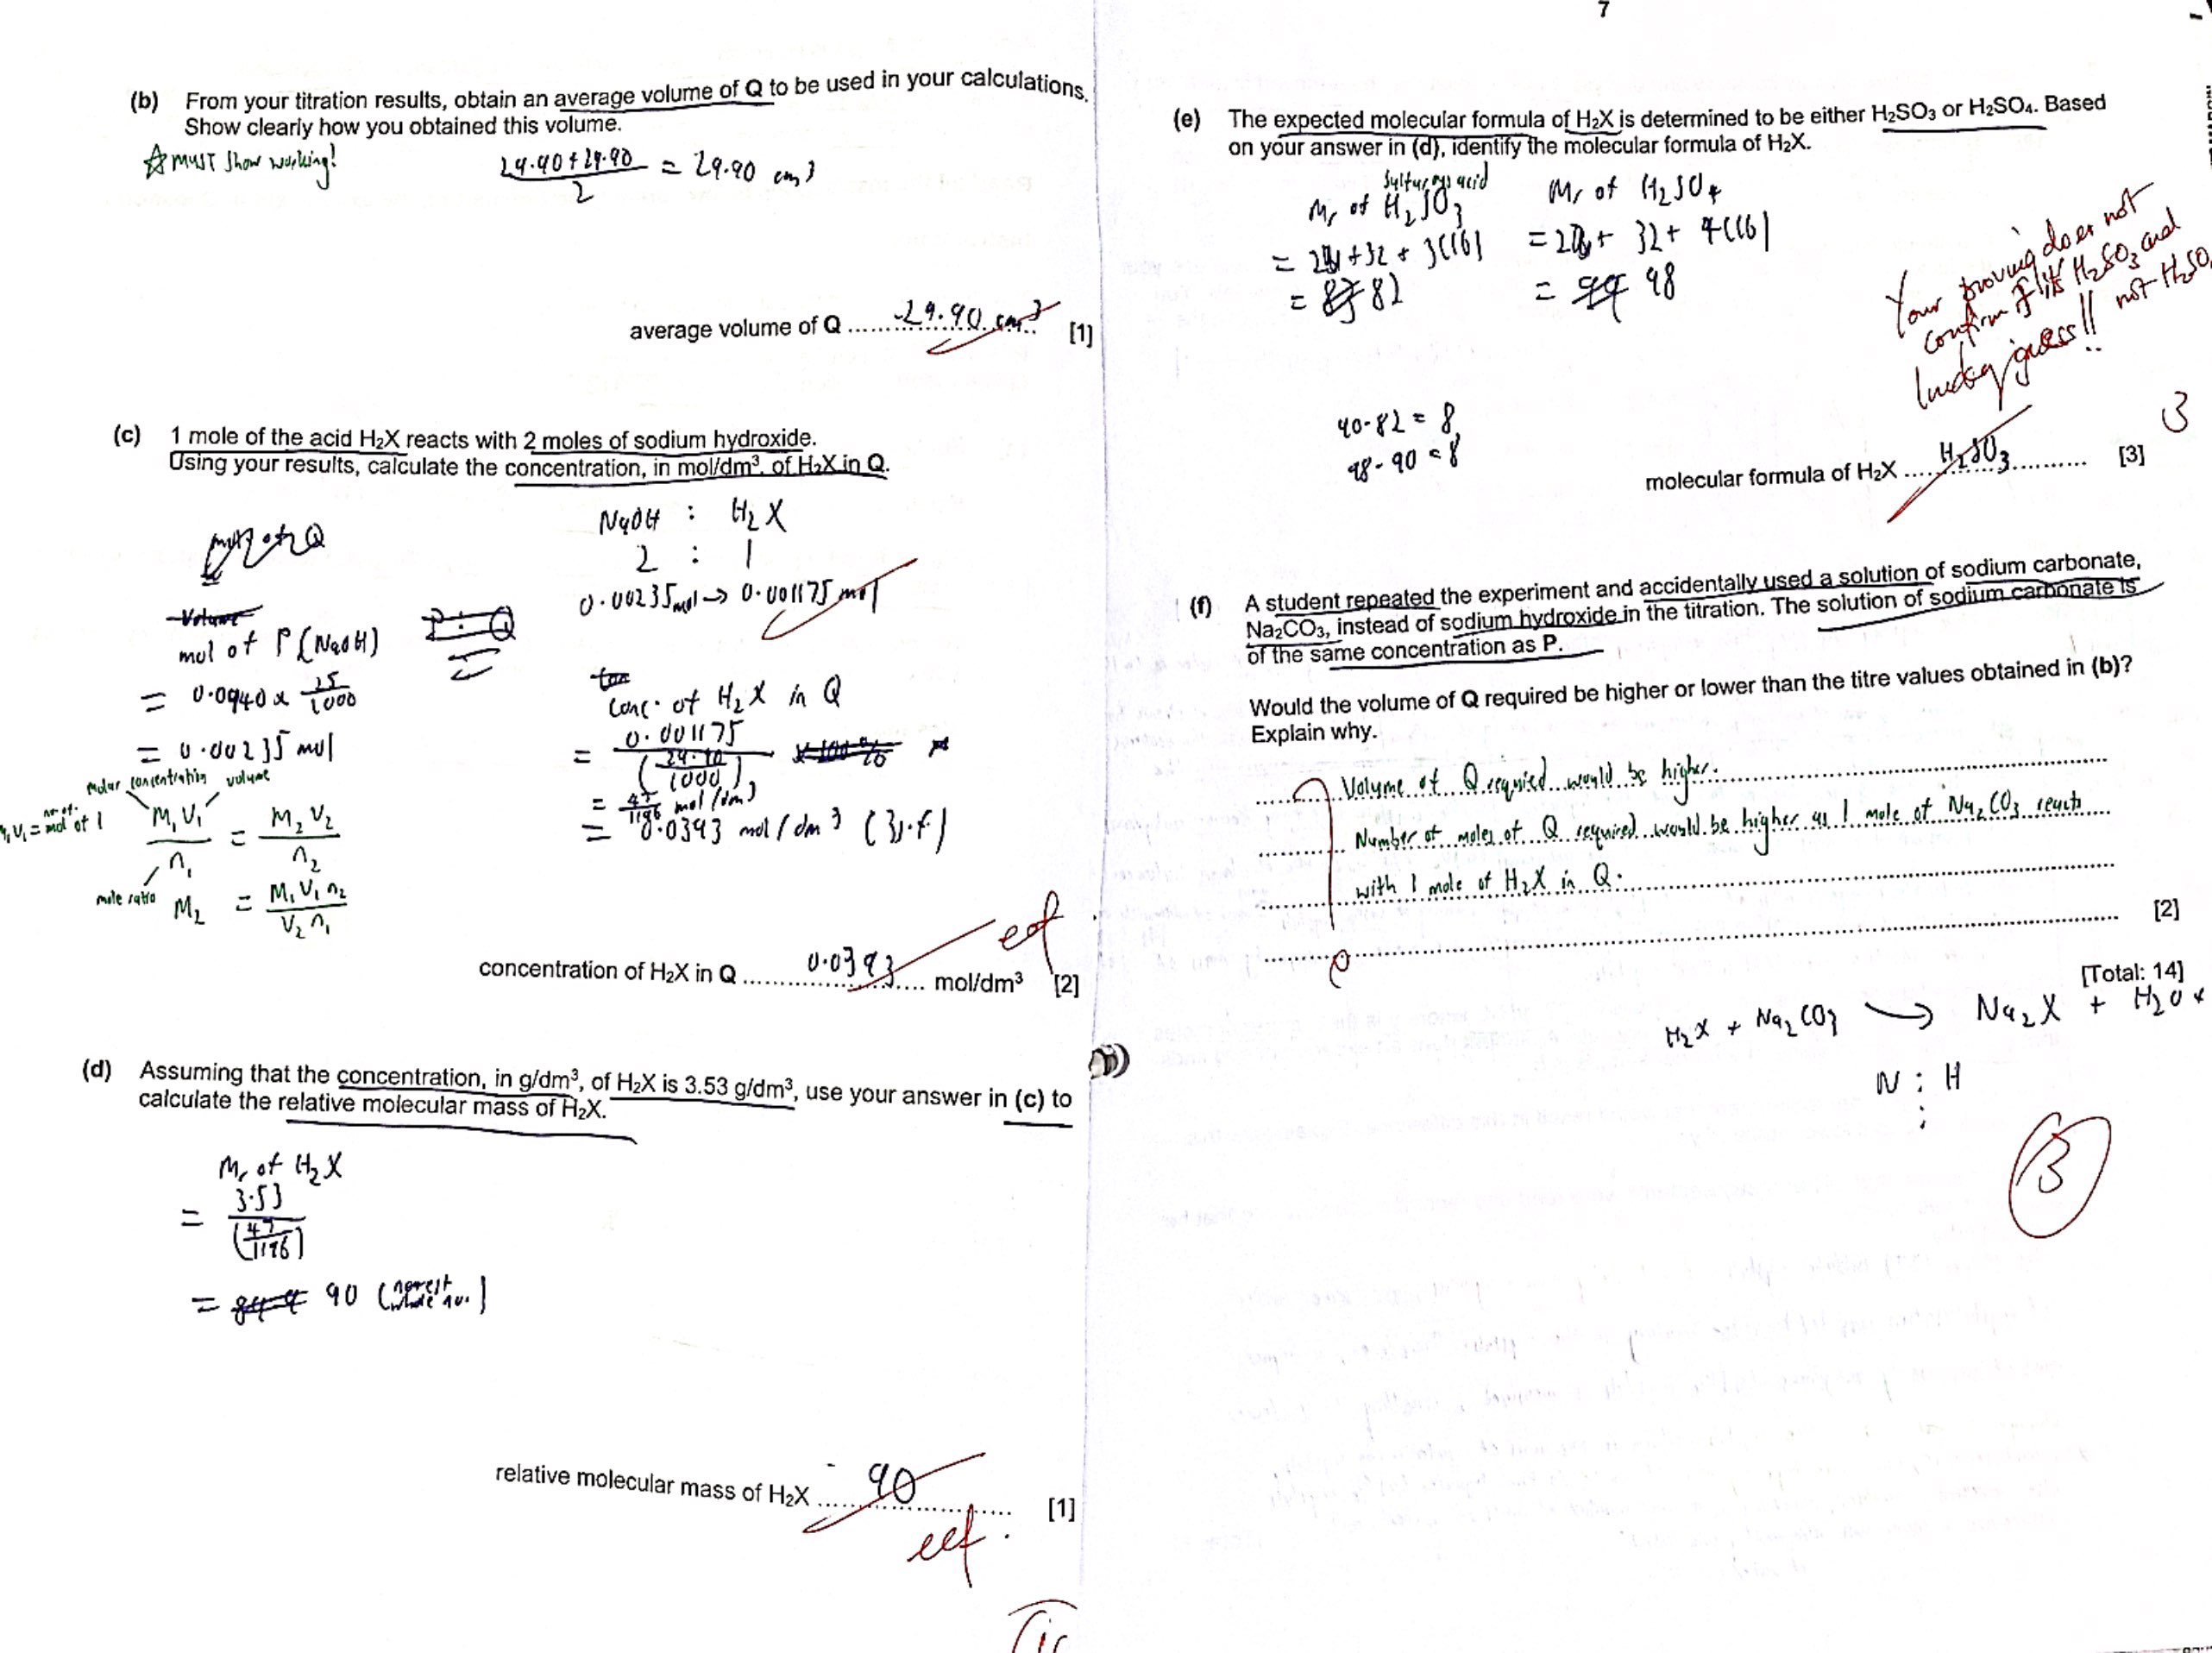 7
(b) From your titration results, obtain an average volume of Q to be used in your calculations.
Show clearly how you obtained this volume.
☆ MUST show working!
29.90 + 29.90 / 2 = 29.90 cm³
average volume of Q ...... 29.90 cm³ [1]
(c) 1 mole of the acid H₂X reacts with 2 moles of sodium hydroxide.
Using your results, calculate the concentration, in mol/dm³, of H₂X in Q.
NaOH : H₂X
2 : 1
0.00235 mol → 0.001175 mol
mol of P (NaOH)
= 0.0940 x 25/1000
= 0.00235 mol
molar concentration volume
M₁V₁/n₁ = M₂V₂/n₂
mole ratio
M₂ = M₁V₁n₂/V₂n₁
conc. of H₂X in Q
= 0.001175 / (29.90/1000)
= 47/1196 mol/dm³
= 0.0393 mol/dm³ (3s.f)
eof
concentration of H₂X in Q ...... 0.0393 ...... mol/dm³ [2]
(d) Assuming that the concentration, in g/dm³, of H₂X is 3.53 g/dm³, use your answer in (c) to
calculate the relative molecular mass of H₂X.
Mr of H₂X
= 3.53 / (47/1196)
= 90 (nearest whole no.)
relative molecular mass of H₂X ...... 90 ...... [1]
ecf.
(e) The expected molecular formula of H₂X is determined to be either H₂SO₃ or H₂SO₄. Based
on your answer in (d), identify the molecular formula of H₂X.
sulfurous acid
Mr of H₂SO₃
= 2 + 32 + 3(16)
= 82
Mr of H₂SO₄
= 2 + 32 + 4(16)
= 98
Your proving does not
confirm if it's H₂SO₃ and
not H₂SO
lucky guess!!
90-82 = 8,
98-90 = 8
3
molecular formula of H₂X ...... H₂SO₃ ...... [3]
(f) A student repeated the experiment and accidentally used a solution of sodium carbonate,
Na₂CO₃, instead of sodium hydroxide in the titration. The solution of sodium carbonate is
of the same concentration as P.
Would the volume of Q required be higher or lower than the titre values obtained in (b)?
Explain why.
Volume of Q required would be higher.
Number of moles of Q required would be higher as 1 mole of Na₂CO₃ reacts
with 1 mole of H₂X in Q.
[2]
[Total: 14]
H₂X + Na₂CO₃ → Na₂X + H₂O +
N : H
:
3